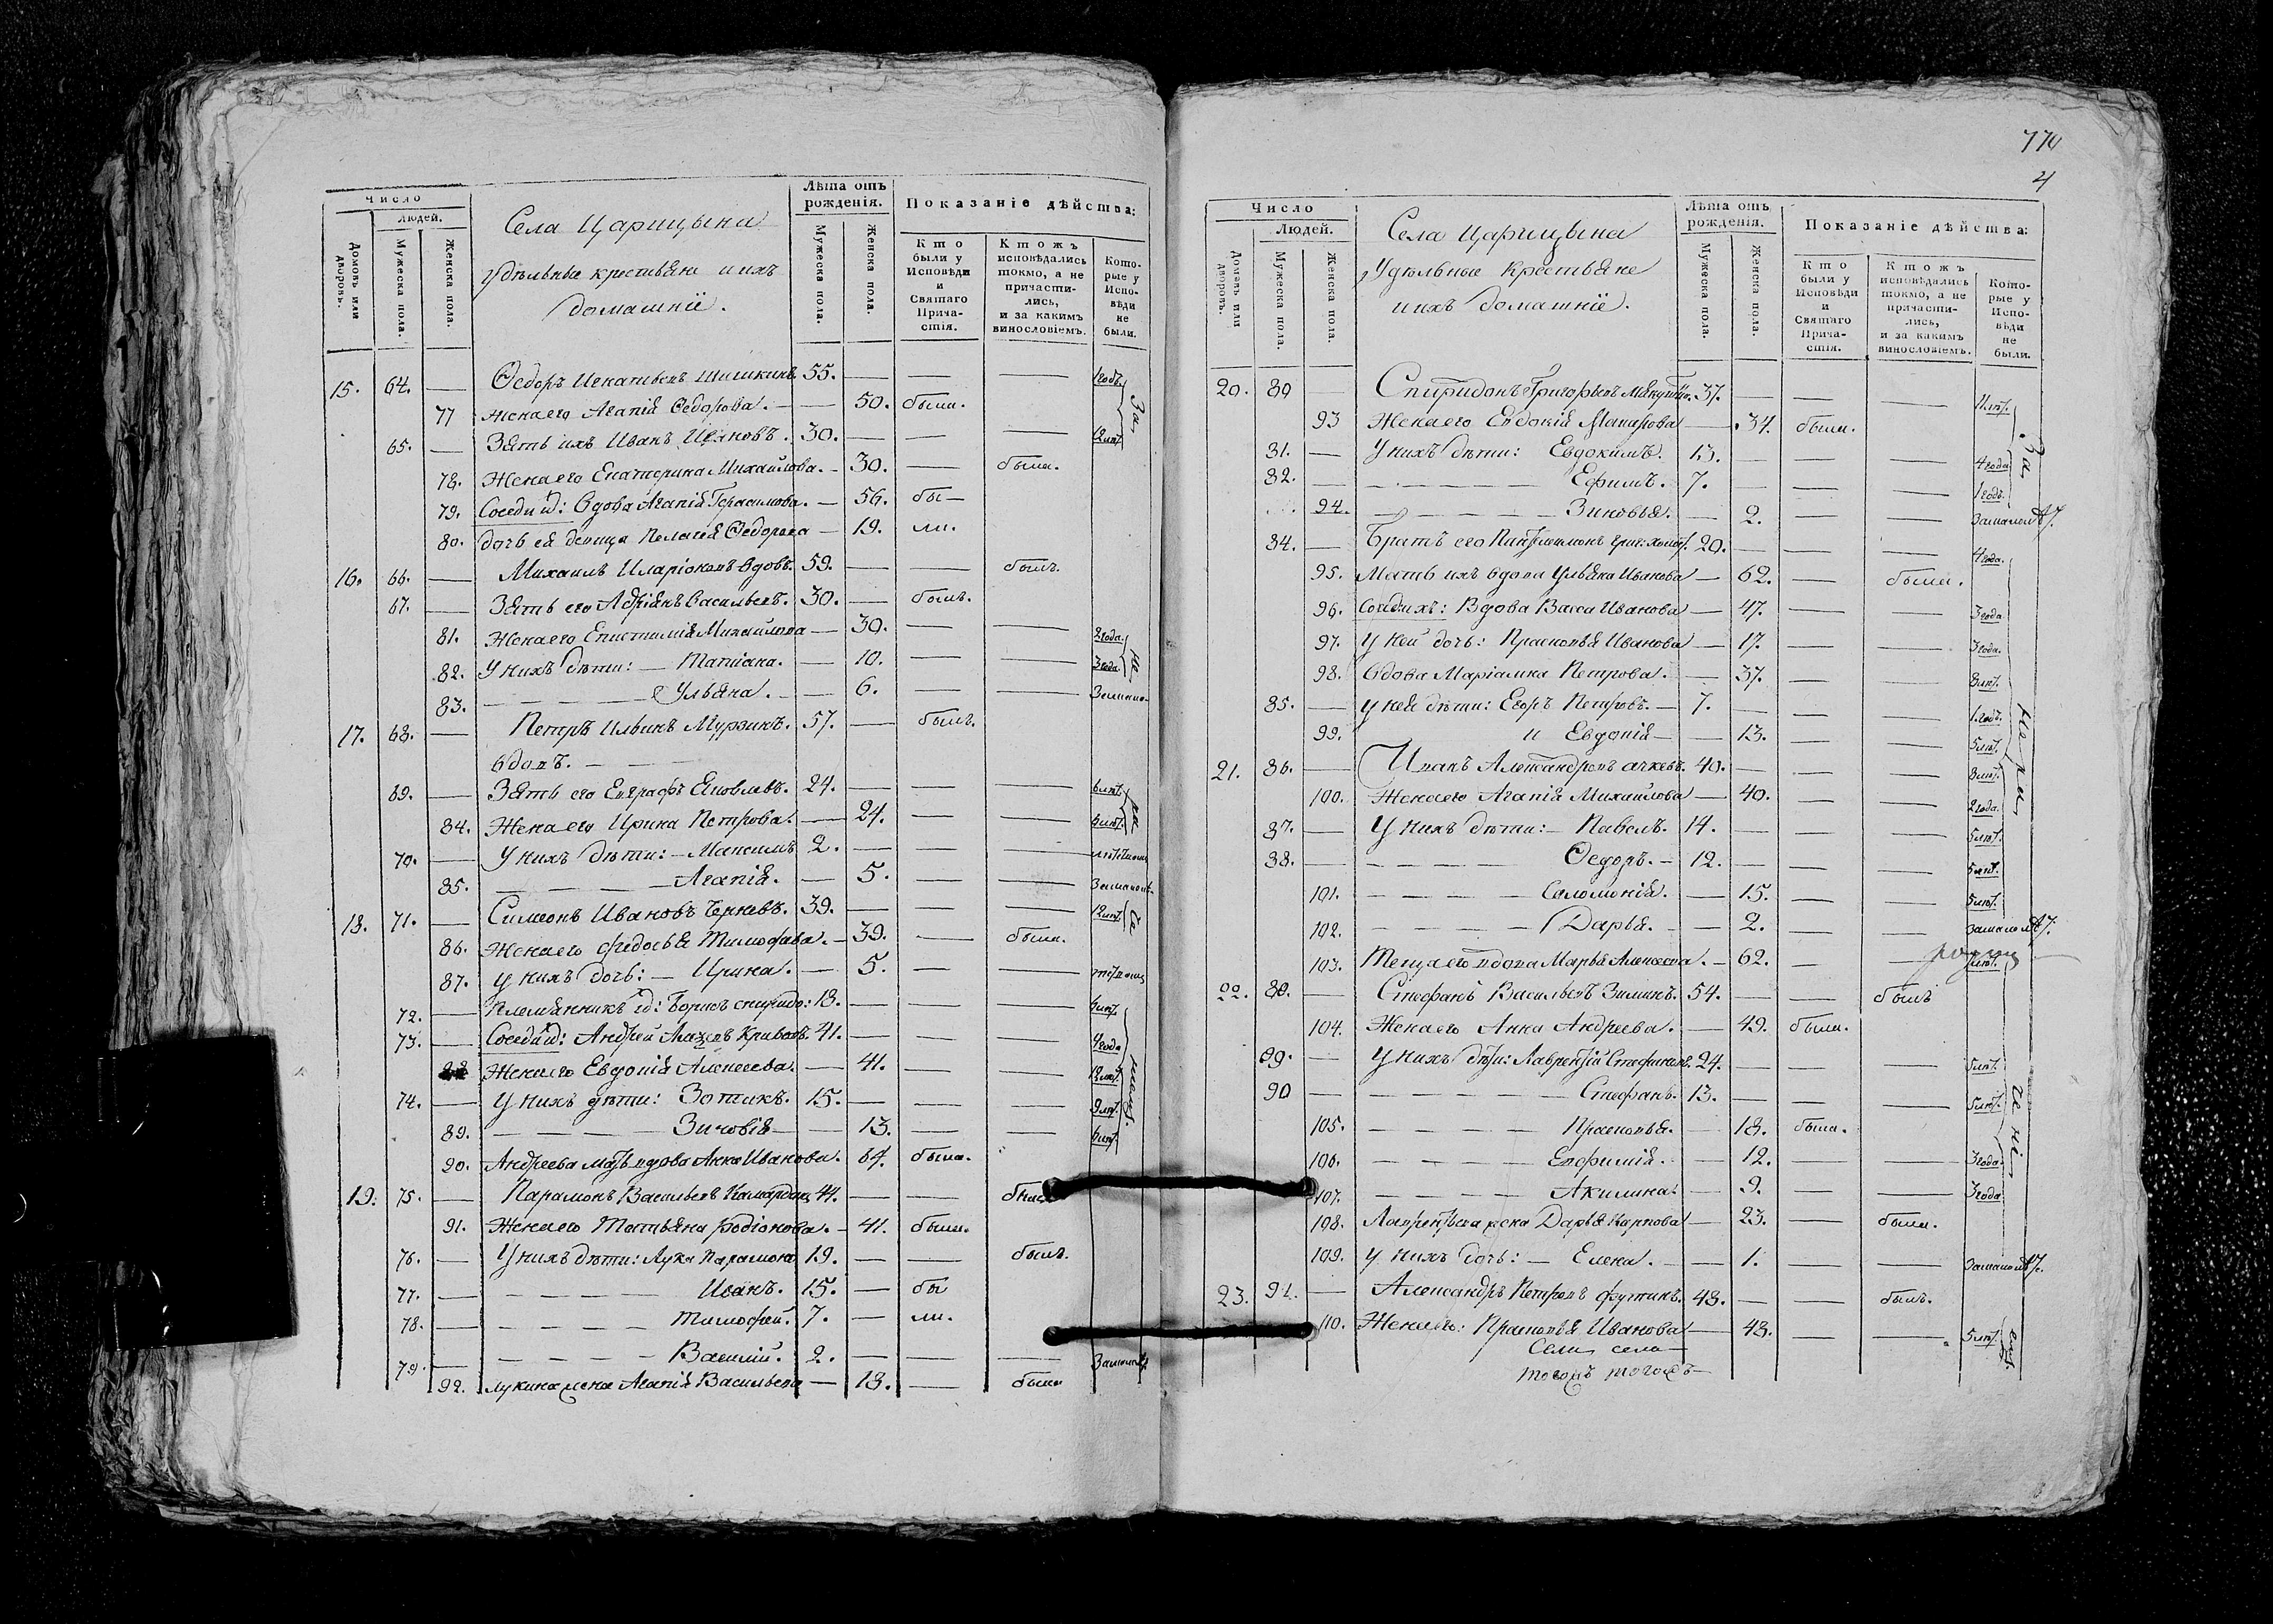 Число
Людей.
Домовъ или дворовъ.
Мужеска пола.
Женска пола.
Села Царицына
удѣльные крестьяне и ихъ
домашніе.
Лѣта отъ рожденія.
Мужеска пола.
Женска пола.
Показаніе дѣйства:
Кто были у Исповѣди и Святаго Причастія.
Ктожъ исповѣдались токмо, а не причастились, и за какимъ винословіемъ.
Которые у Исповѣди не были.
15. 64. — Ѳедоръ Игнатьевъ Шишкинъ. 55. — — — 1 годъ
77 жена его Агапія Ѳедорова. — — 50. была.
65. — Зять ихъ Иванъ Ивановъ. 30. — — — 12 лѣт.
78. Жена его Екатерина Михайлова. — 30. — была.
79. Соседи id: Вдова Агапія Герасимова. — 56. бы—
80. дочь ея девица Пелагея Ѳедорова — 19. ли.
16. 66. — Михаилъ Иларіоновъ вдовъ. 59. — — былъ.
67. — Зять его Адріянъ Васильевъ. 30. — былъ.
81. Жена его Епистимія Михайлова — 30. — — 2 года.
82. У нихъ дѣти: — Татіана. — 10. — — 3 года.
83. — — — Ульяна. — 6. — —
17. 68. — Петръ Ильинъ Мурзинъ. 57. — былъ.
вдовъ. — — —
69. — Зять его Евграфъ Яковлевъ. 24. — — — 6 лѣт.
84. Жена его Ирина Петрова. — 24. — — 6 лѣт.
70. — У нихъ дѣти: — Максимъ 2. — — —
85. — — — Агапія. — 5. — —
18. 71. — Симеонъ Ивановъ 39. — — — 12 лѣт.
86. Жена его Федосья Тимофѣева. — 39. — была.
87. У нихъ дочь: — Ирина. — 5. — —
72. — Племянникъ id: Борисъ спиридо: 18. — — — 6 лѣт.
73. — Соседи id: Андрей 41. — — — 4 года
Жена его Евдокія Алексеева. — 41. — — 12 лѣт.
74. — У нихъ дѣти: Зотикъ. 15. — — — 9 лѣт.
89. — — — Зиновія — — 13. — — 6 лѣт.
90. Андреева мать вдова Анна Иванова. 64. была.
19. 75. — Парамонъ Васильевъ 44. — —
91. Жена его Татьяна Родіонова. — 41. была.
76. — У нихъ дѣти: Лука Парамоно 19. — — былъ.
77. — — — — Иванъ. 15. — бы
78. — — — — Тимофей. 7. — ли.
79. — — — — Василій. 2. — — —
92. Лукина жена Агапія Васильева — 18. — была
770
4
Число
Людей.
Домовъ или дворовъ.
Мужеска пола.
Женска пола.
Села Царицына
Удѣльные крестьяне
и ихъ домашніе.
Лѣта отъ рожденія.
Мужеска пола.
Женска пола.
Показаніе дѣйства:
Кто были у Исповѣди и Святаго Причастія.
Ктожъ исповѣдались токмо, а не причастились, и за какимъ винословіемъ.
Которые у Исповѣди не были.
20. 80 — Спиридонъ Григорьевъ 37. — — —
93 Жена его Евдокія Макарова — 34. была.
81. — У нихъ дѣти: Евдокимъ. 13. — — — 4 года
82. — — — Ефимъ. 7. — — — 1 годъ.
94. — — — Зиновья. — 2. — — за малолѣт.
84. — Братъ его Пантелеимонъ 20. — — — 4 года.
95. Мать ихъ вдова Ульяна Иванова — 62. — была.
96. Соседи ихъ: Вдова Васса Иванова — 47. — — 3 года
97. У ней дочь: Прасковья Иванова — 17. — — 3 года.
98. Вдова Маріамна Петрова. — 37. — — 8 лѣт.
85. — У нея дѣти: Егоръ Петровъ. — 7. — — — 1 годъ.
99. и Евдокія — — 13. — — 5 лѣт.
21. 86. — Иванъ Александровъ 40. — — — 8 лѣт.
100. Жена его Агапія Михайлова — 40. — — 2 года.
87. — У нихъ дѣти: — Павелъ. 14. — — — 5 лѣт.
88. — — — Ѳедоръ. — 12. — — — 5 лѣт.
101. — — — Соломонія. — 15. — — 5 лѣт.
102. — — — Дарья. — 2. — — за малолѣт.
103. Теща его вдова Марья Алексеева. — 62. — —
22. 89. — Стефанъ Васильевъ Зиминъ. 54. — — былъ
104. Жена его Анна Андреева. — 49. была.
89. — У нихъ дѣти: Лаврентій Стефановъ. 24. — — — 5 лѣт.
90 — — — Стефанъ. 13. — — — 5 лѣт.
105. — — — Прасковья. — 18. была.
106. — — — Евфимія. — 12. — — 3 года.
107. — — — Акилина. — 9. — — 3 года
108. Лаврентьева жена Дарья Карпова — 23. — была.
109. У нихъ дочь: — Елена. — 1. — — за малолѣт.
23. 91. — Александръ Петровъ 48. — — былъ.
110. Жена его: Прасковья Иванова — 48. — — 5 лѣт.